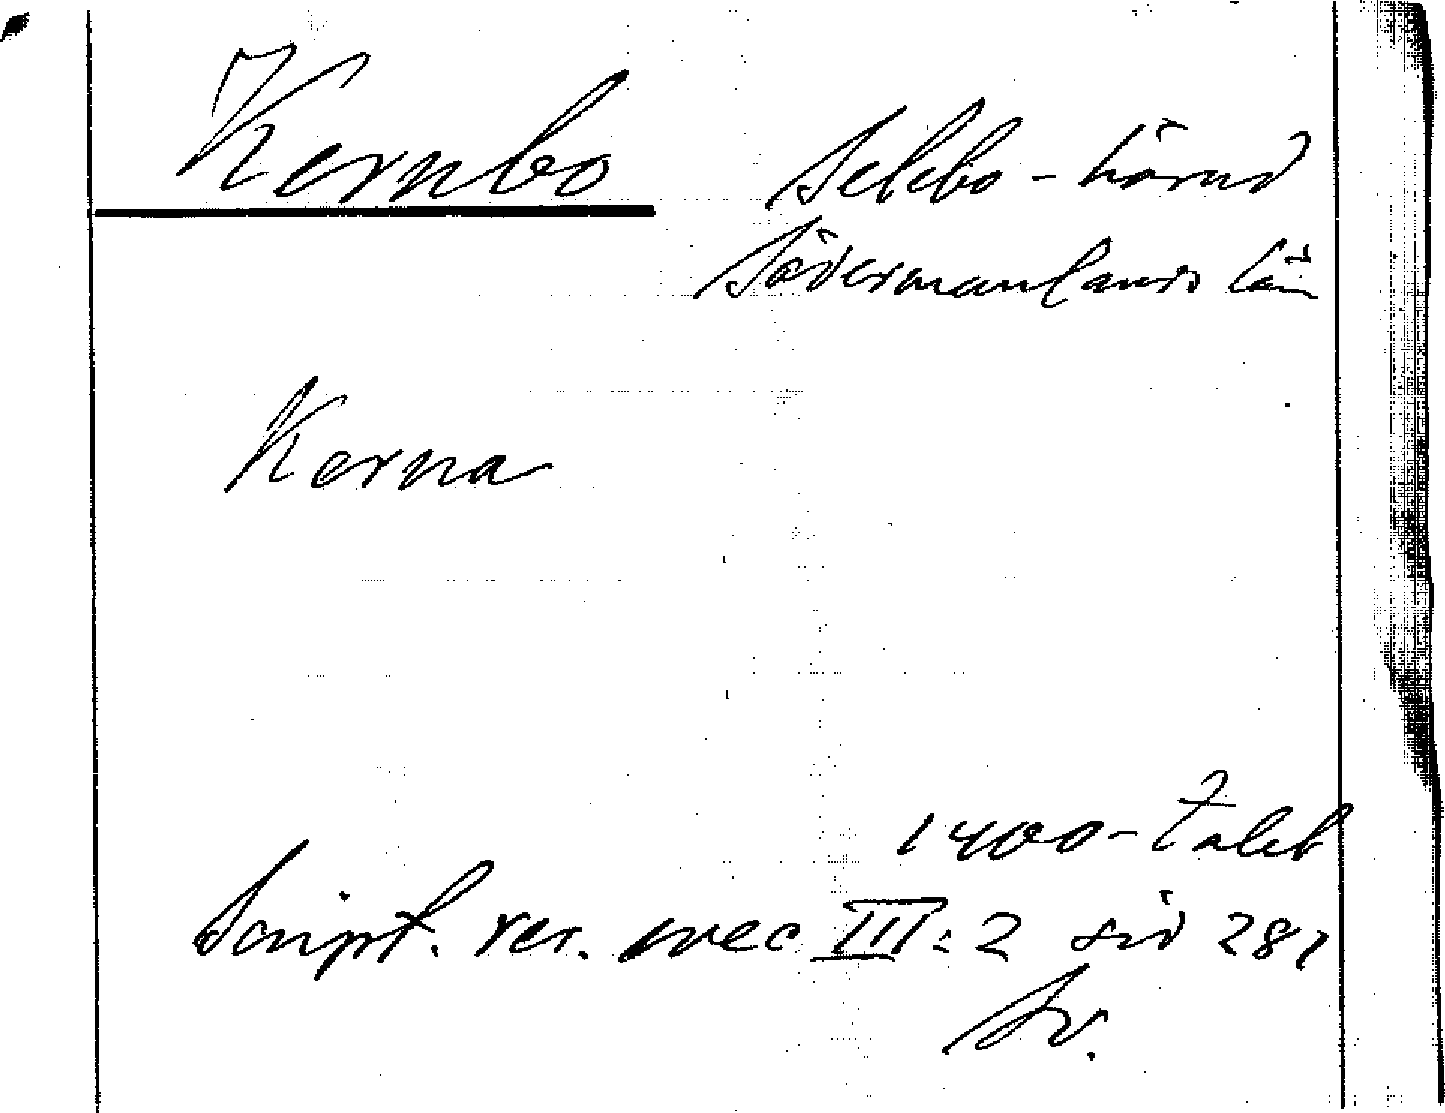 Kernbo
Selebo-härad
Södermanlands län
Kerna
1400-talet
Script. rer. svec III:2 sid 281
Sv.